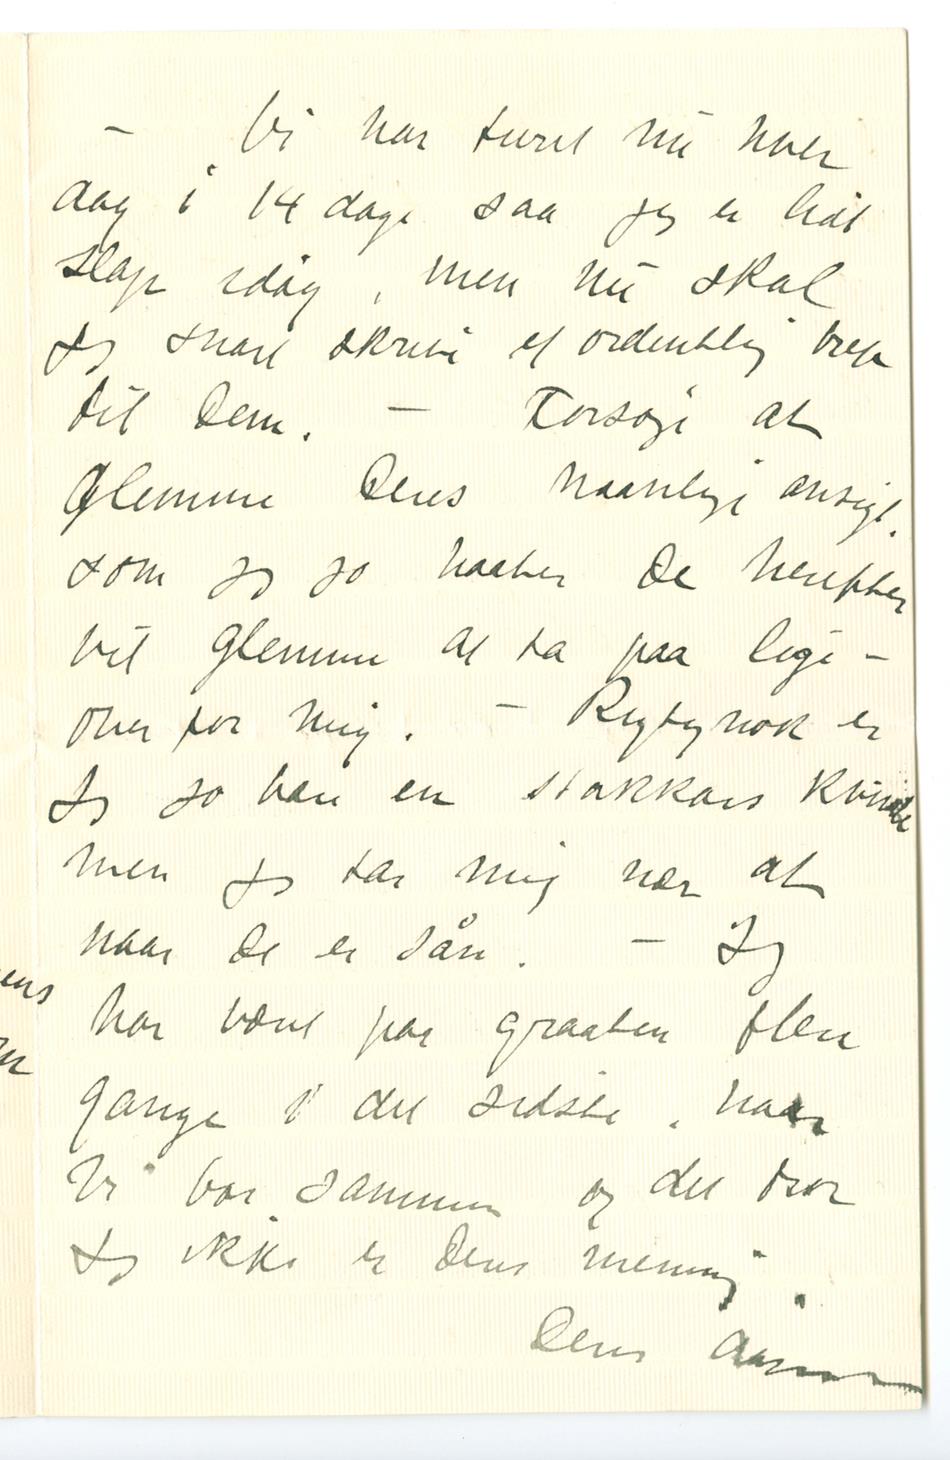 — Vi har turet nu hver
dag i 14 dage saa jeg er lidt
slap idag, men nu skal
jeg snart skrive et ordentlig brev
til Dem. — Forsøge at
glemme Deres haanlige ansigt,
som jeg jo haaber De herefter
vil glemme at ta paa lige-
over for mig. — Rigtignok er
jeg jo bare en stakkars kvinde
men jeg tar mig nær at
naar De er sån. — Jeg
har været paa graaten flere
gange i det sidste, naar
vi var sammen og det tror
jeg ikke er Deres mening.
Deres
ens